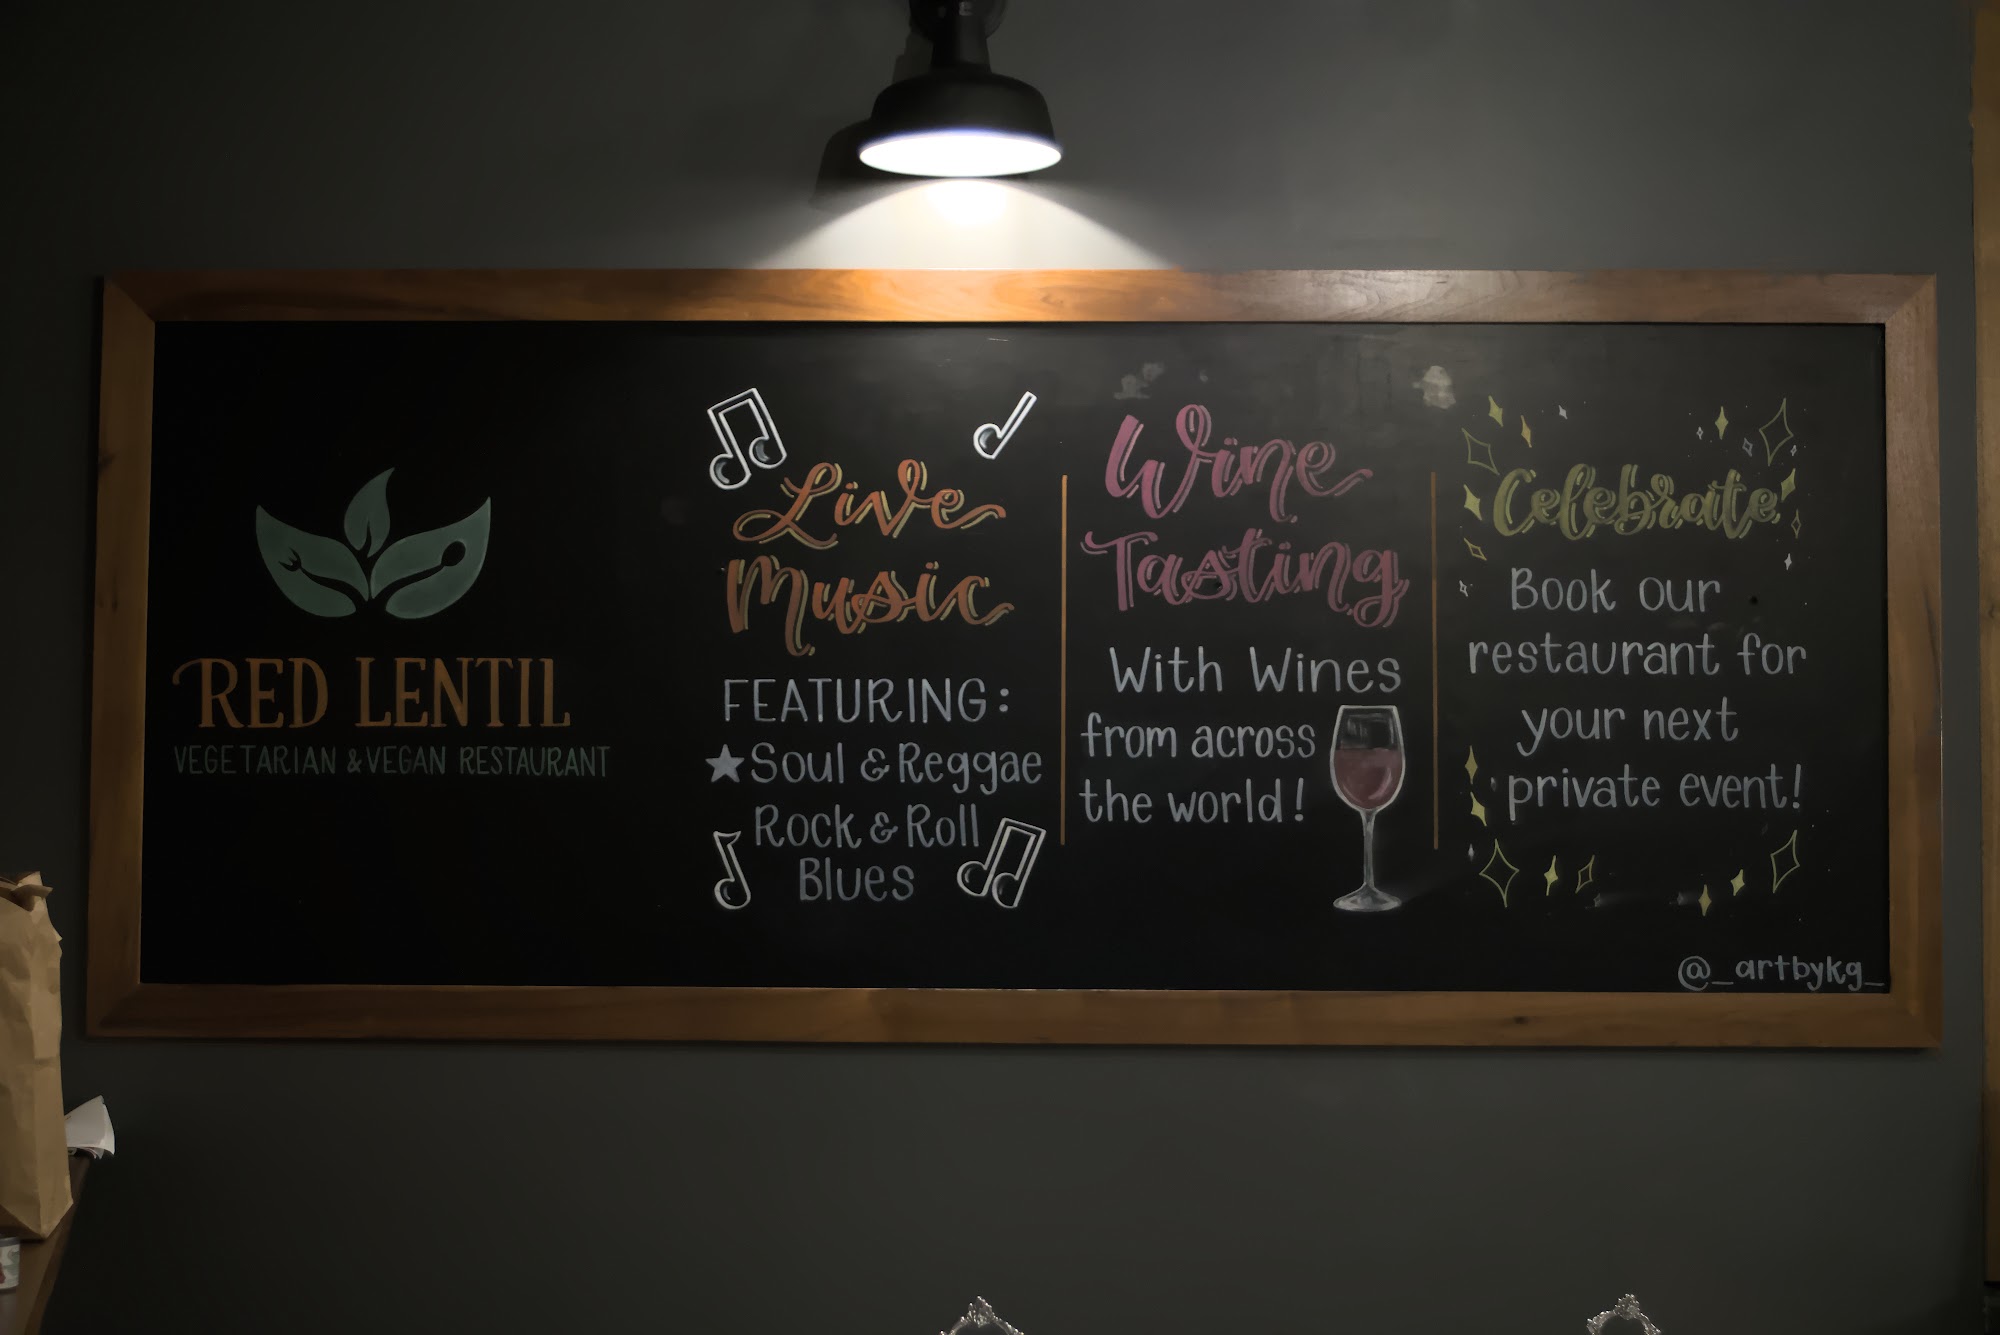 RED LENTIL
VEGETARIAN & VEGAN RESTAURANT
Live
Music
FEATURING:
Soul & Reggae
Rock & Roll
Blues
Wine
Tasting
With Wines
from across
the world!
Celebrate
Book our
restaurant for
your next
private event!
@_artbykg_